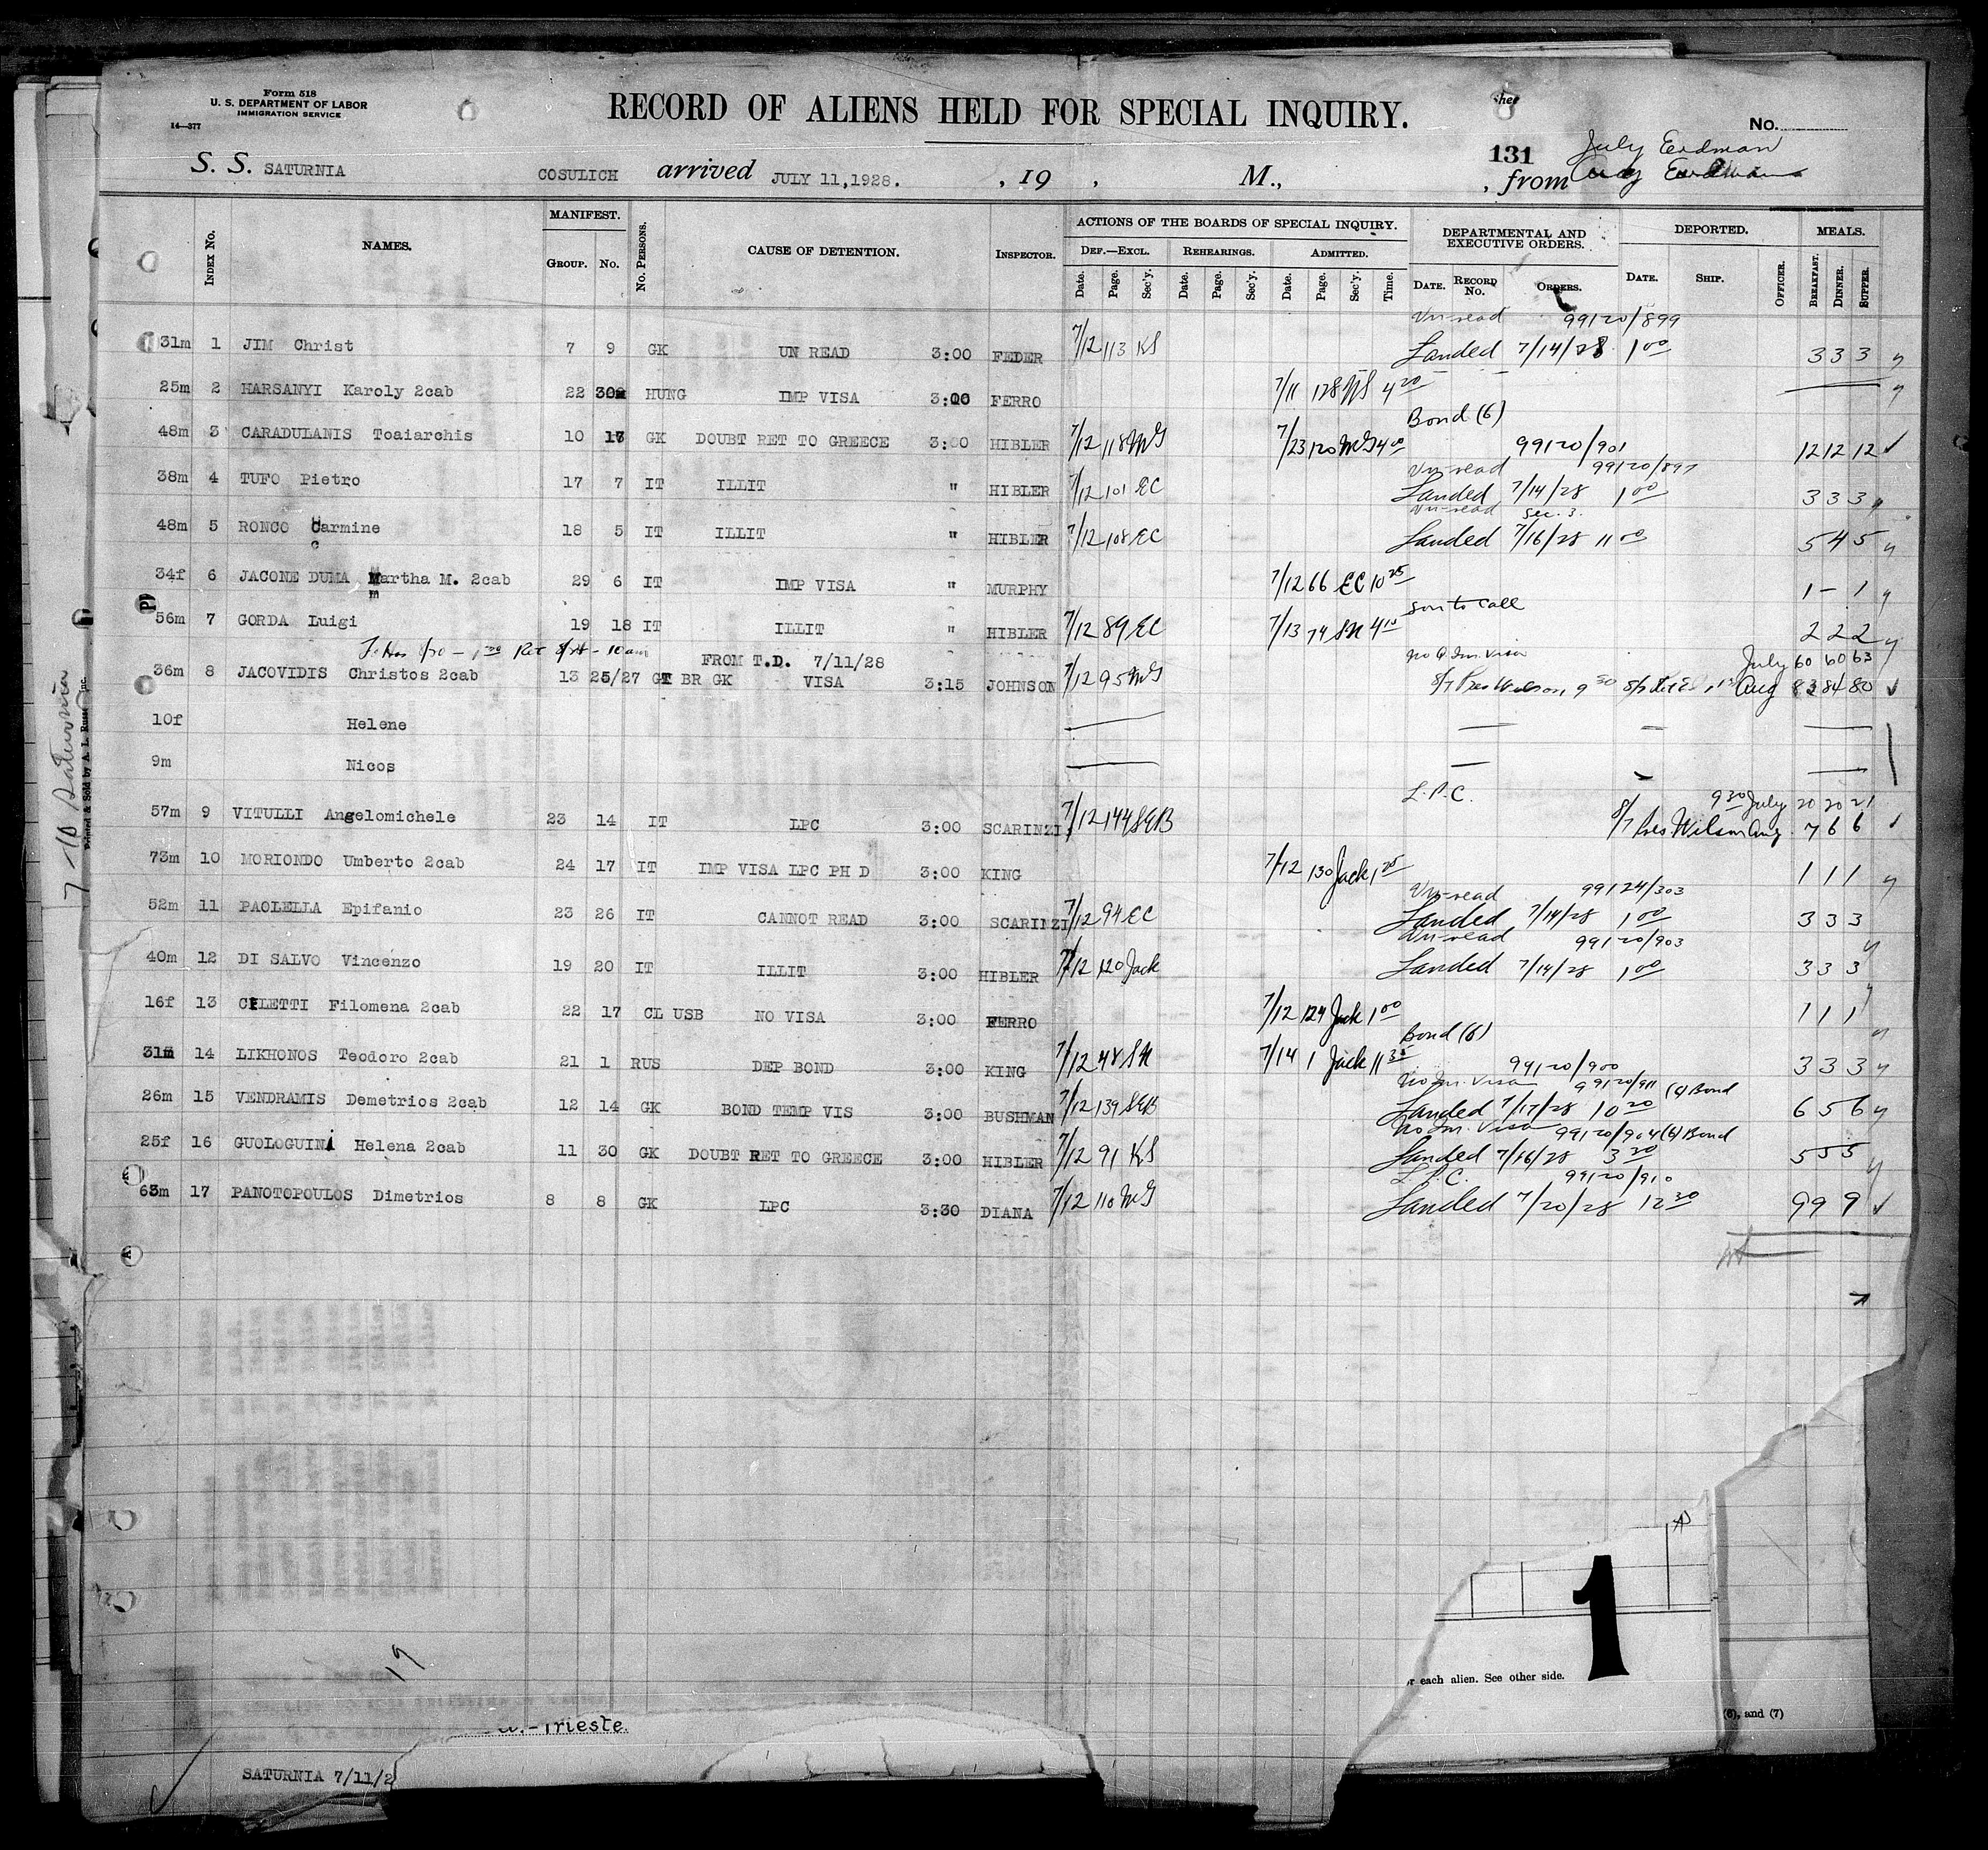 Form 518
U. S. DEPARTMENT OF LABOR
IMMIGRATION SERVICE
14—377
RECORD OF ALIENS HELD FOR SPECIAL INQUIRY.
No.
S. S. SATURNIA COSULICH arrived JULY 11,1928. , 19 , M., 131 , from
July Erdman
INDEX No. NAMES. MANIFEST. GROUP. No. No. PERSONS. CAUSE OF DETENTION. INSPECTOR. ACTIONS OF THE BOARDS OF SPECIAL INQUIRY. DEF.—EXCL. Date. Page. Sec'y. REHEARINGS. Date. Page. Sec'y. ADMITTED. Date. Page. Sec'y. Time. DEPARTMENTAL AND EXECUTIVE ORDERS. DATE. RECORD No. ORDERS. DEPORTED. DATE. SHIP. OFFICER. MEALS. BREAKFAST. DINNER. SUPPER.
Un-read 99120/899
31m 1 JIM Christ 7 9 GK UN READ 3:00 FEDER 7/12 113 KS Landed 7/14/28 1 00 3 3 3
25m 2 HARSANYI Karoly 2cab 22 30 HUNG IMP VISA 3:00 FERRO 7/11 128 4 20
Bond (6)
48m 3 CARADULANIS Toaiarchis 10 GK DOUBT RET TO GREECE 3:00 HIBLER 7/12 118 MG 7/23 120 MG 4 00 99120/901 12 12 12
Un-read 99120/897
38m 4 TUFO Pietro 17 7 IT ILLIT " HIBLER 7/12 101 EC Landed 7/14/28 1 00 3 3 3
Un-read Sec. 3.
48m 5 RONCO Carmine 18 5 IT ILLIT " HIBLER 7/12 108 EC Landed 7/16/28 11 00 5 4 5
34f 6 JACONE DUMA Martha M. 2cab 29 6 IT IMP VISA " MURPHY 7/12 66 EC 10 25 1 – 1
son to call
56m 7 GORDA Luigi 19 18 IT ILLIT " HIBLER 7/12 89 EC 7/13 74 SN 4 10 2 2 2
FROM T.D. 7/11/28 July 60 60 63
36m 8 JACOVIDIS Christos 2cab 13 25/27 BR GK VISA 3:15 JOHNSON 7/12 95 MG 8/7 Pres Wilson, 9 30 Aug 83 84 80
10f Helene
9m Nicos
L.P.C. 9 30 July 20 20 21
57m 9 VITULLI Angelomichele 23 14 IT LPC 3:00 SCARINZI 7/12 144 SEB 8/7 Pres Wilson Aug. 7 6 6
73m 10 MORIONDO Umberto 2cab 24 17 IT IMP VISA LPC PH D 3:00 KING 7/12 130 Jack 1 25 1 1 1
Un-read 99124/303
52m 11 PAOLELLA Epifanio 23 26 IT CANNOT READ 3:00 SCARINZI 7/12 94 EC Landed 7/14/28 1 00 3 3 3
Un-read 99120/903
40m 12 DI SALVO Vincenzo 19 20 IT ILLIT 3:00 HIBLER 7/12 120 Jack Landed 7/14/28 1 00 3 3 3
16f 13 CELETTI Filomena 2cab 22 17 CL USB NO VISA 3:00 FERRO 7/12 124 Jack 1 00 1 1 1
Bond (6)
14 LIKHONOS Teodoro 2cab 21 1 RUS DEP BOND 3:00 KING 7/12 48 SN 7/14 1 Jack 11 35 99120/900 3 3 3
No Im. Visa 99120/911 (6) Bond
26m 15 VENDRAMIS Demetrios 2cab 12 14 GK BOND TEMP VIS 3:00 BUSHMAN 7/12 139 SEB Landed 7/17/28 10 20 6 5 6
No Im. Visa 99120/904 (6) Bond
25f 16 GUOLOGUINi Helena 2cab 11 30 GK DOUBT RET TO GREECE 3:00 HIBLER 7/12 91 KS Landed 7/16/28 3 20 5 5 5
L.P.C. 99120/910
63m 17 PANOTOPOULOS Dimetrios 8 8 GK LPC 3:30 DIANA 7/12 110 MG Landed 7/20/28 12 30 9 9 9
7-10 Saturnia
Printed & Sold by A. L. Russ Inc.
19
1
r each alien. See other side.
(6), and (7)
-Trieste.
SATURNIA 7/11/2